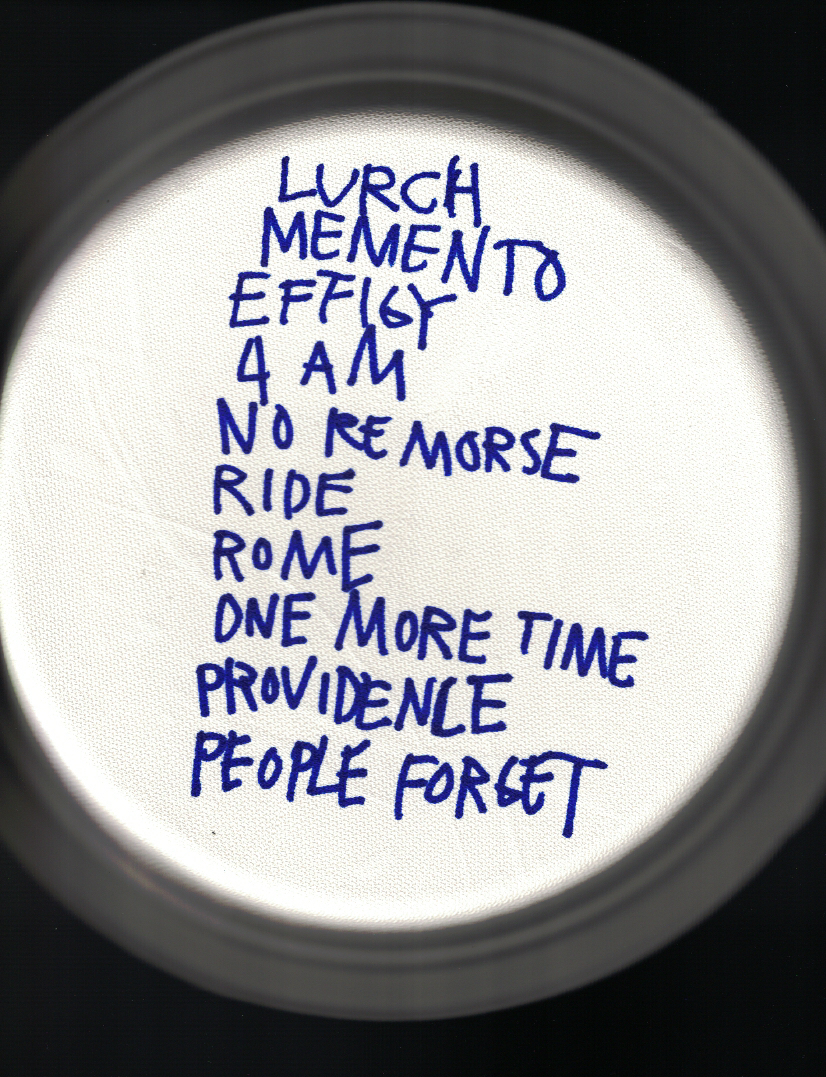 LURCH
MEMENTO
EFFIGY
4 AM
NO REMORSE
RIDE
ROME
ONE MORE TIME
PROVIDENCE
PEOPLE FORGET